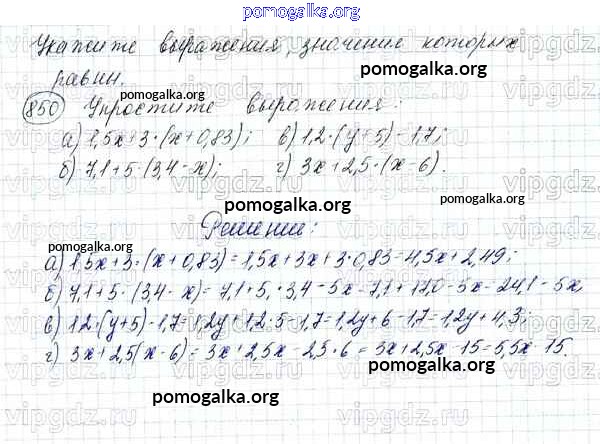 pomogalka.org
Укажите выражения, значение которых
равны.
pomogalka.org
850 Упростите выражения:
pomogalka.org
а) 1,5x+3·(x+0,83); в) 1,2·(y+5)-1,7;
б) 7,1+5·(3,4-x); г) 3x+2,5·(x-6).
pomogalka.org
pomogalka.org
Решение:
pomogalka.org
а) 1,5x+3·(x+0,83)=1,5x+3x+3·0,83=4,5x+2,49;
б) 7,1+5·(3,4-x)=7,1+5·3,4-5x=7,1+17,0-5x=24,1-5x,
в) 1,2·(y+5)-1,7=1,2y+1,2·5-1,7=1,2y+6-1,7=1,2y+4,3;
г) 3x+2,5(x-6)=3x+2,5x-2,5·6=3x+2,5x-15=5,5x-15.
pomogalka.org
pomogalka.org
pomogalka.org
pomogalka.org
vipgdz.ru